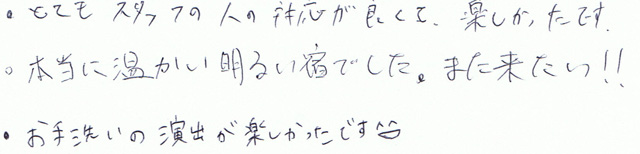 ・とても スタッフの人の対応が良くて、楽しかったです.
。本当に温かい明るい宿でした。また来たいっ!!
・お手洗いの演出が楽しかったです